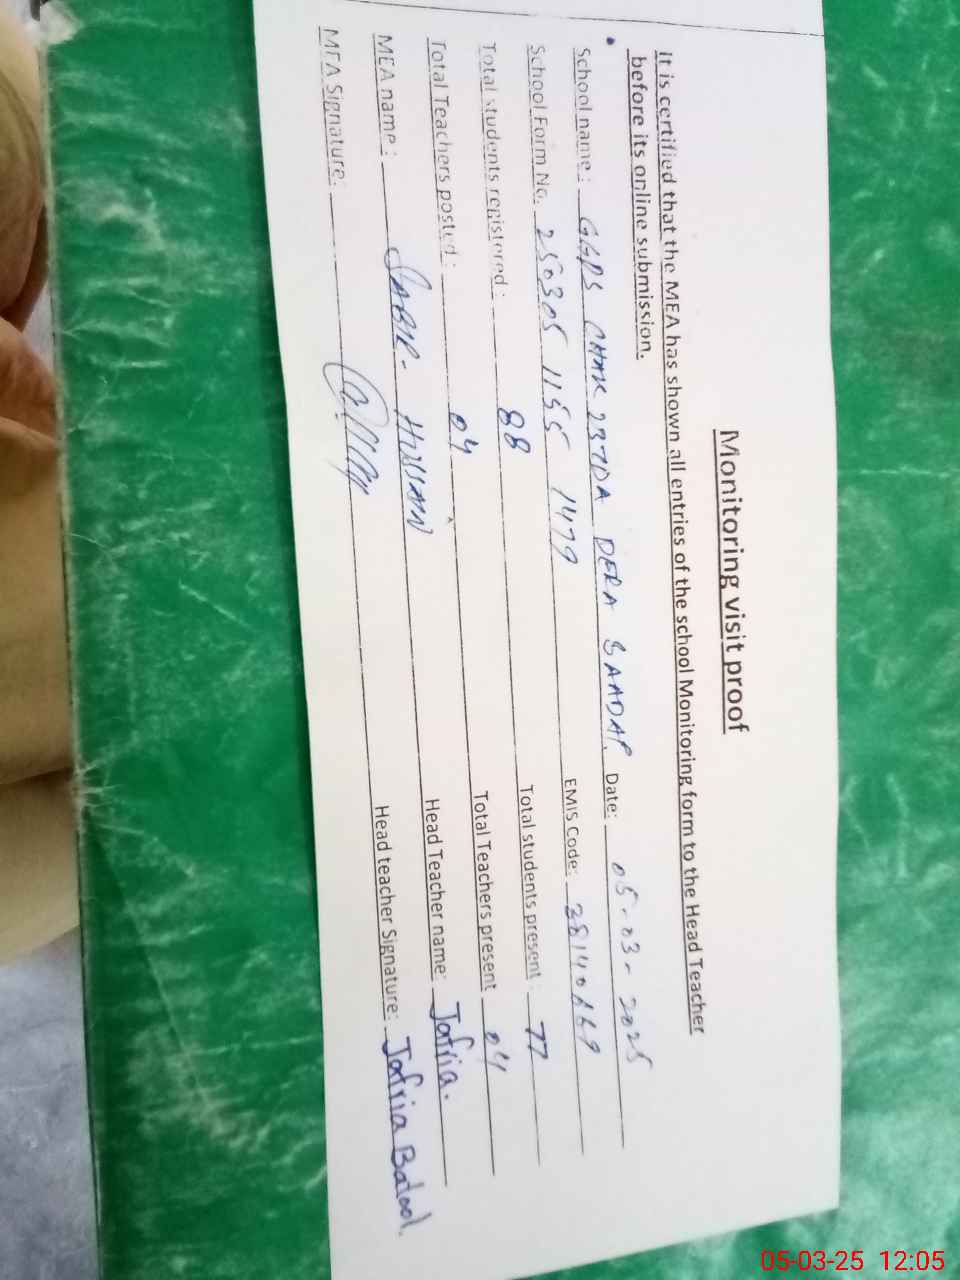 Monitoring visit proof
It is certified that the MEA has shown all entries of the school Monitoring form to the Head Teacher
before its online submission.
School name: GGPS CHAK 237DA DERA SAADAP Date: 05-03-2025
School Form No. 250305 1155 1479 EMIS Code:
Total students registered: 88 Total students present: 77
Total Teachers posted: 04 Total Teachers present 04
MEA name: SABIR HUSSAIN Head Teacher name: Jafria.
MEA Signature: Head teacher Signature: Jafria Batool.
05-03-25 12:05